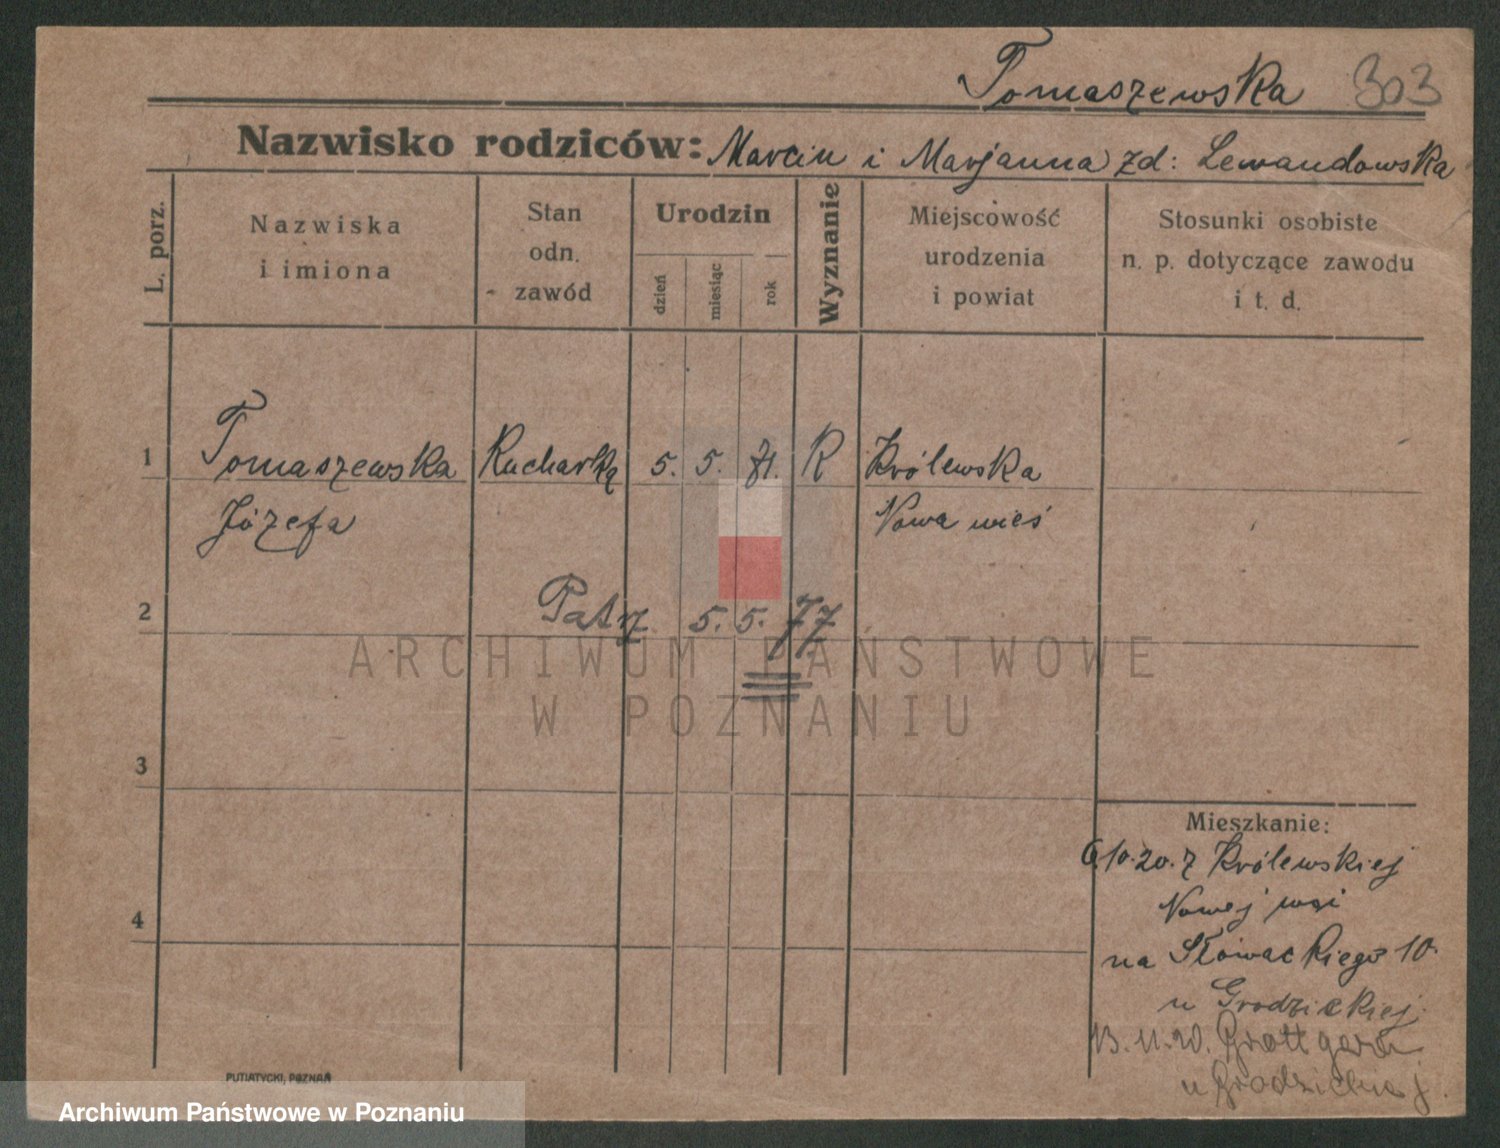 Tomaszewska 303
Nazwisko rodziców: Marcin i Marjanna zd: Lewandowska
L. porz.
Nazwiska
i imiona
Stan
odn.
zawód
Urodzin
dzień
miesiąc
rok
Wyznanie
Miejscowość
urodzenia
i powiat
Stosunki osobiste
n. p. dotyczące zawodu
i t. d.
1 Tomaszewska Kucharką 5. 5. 71. R Królewska
Józefa Nowa wieś
2 Patrz 5. 5. 77
ARCHIWUM PAŃSTWOWE
W POZNANIU
3
Mieszkanie:
6.10.20. z Królewskiej
Nowej wsi
4
na Słowackiego 10.
u Grodzickiej
13.11.20.
u Grodzickiej.
PUTIATYCKI, POZNAŃ
Archiwum Państwowe w Poznaniu